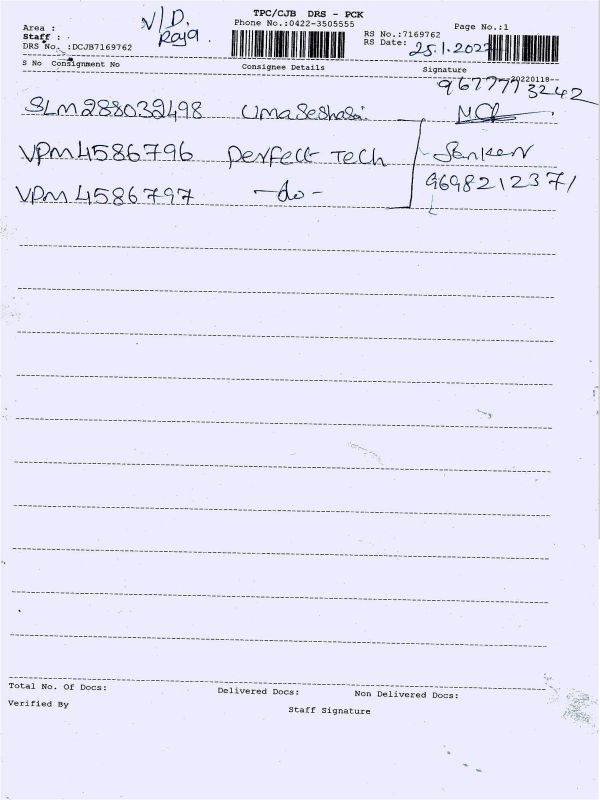 V/D.
Raja.
TPC/CJB DRS - PCK
Phone No.:0422-3505555
Area :
Staff :
DRS No. :DCJB7169762
RS No.:7169762
Page No.:1
RS Date: 25.1.2022
S No Consignment No Consignee Details Signature
--20220118--
9677773242
SLM288032498 Umaseshasai
VPM4586796 Perfect Tech Sanker
VPM4586797 -do- 9698212371
Total No. Of Docs: Delivered Docs: Non Delivered Docs:
Verified By Staff Signature